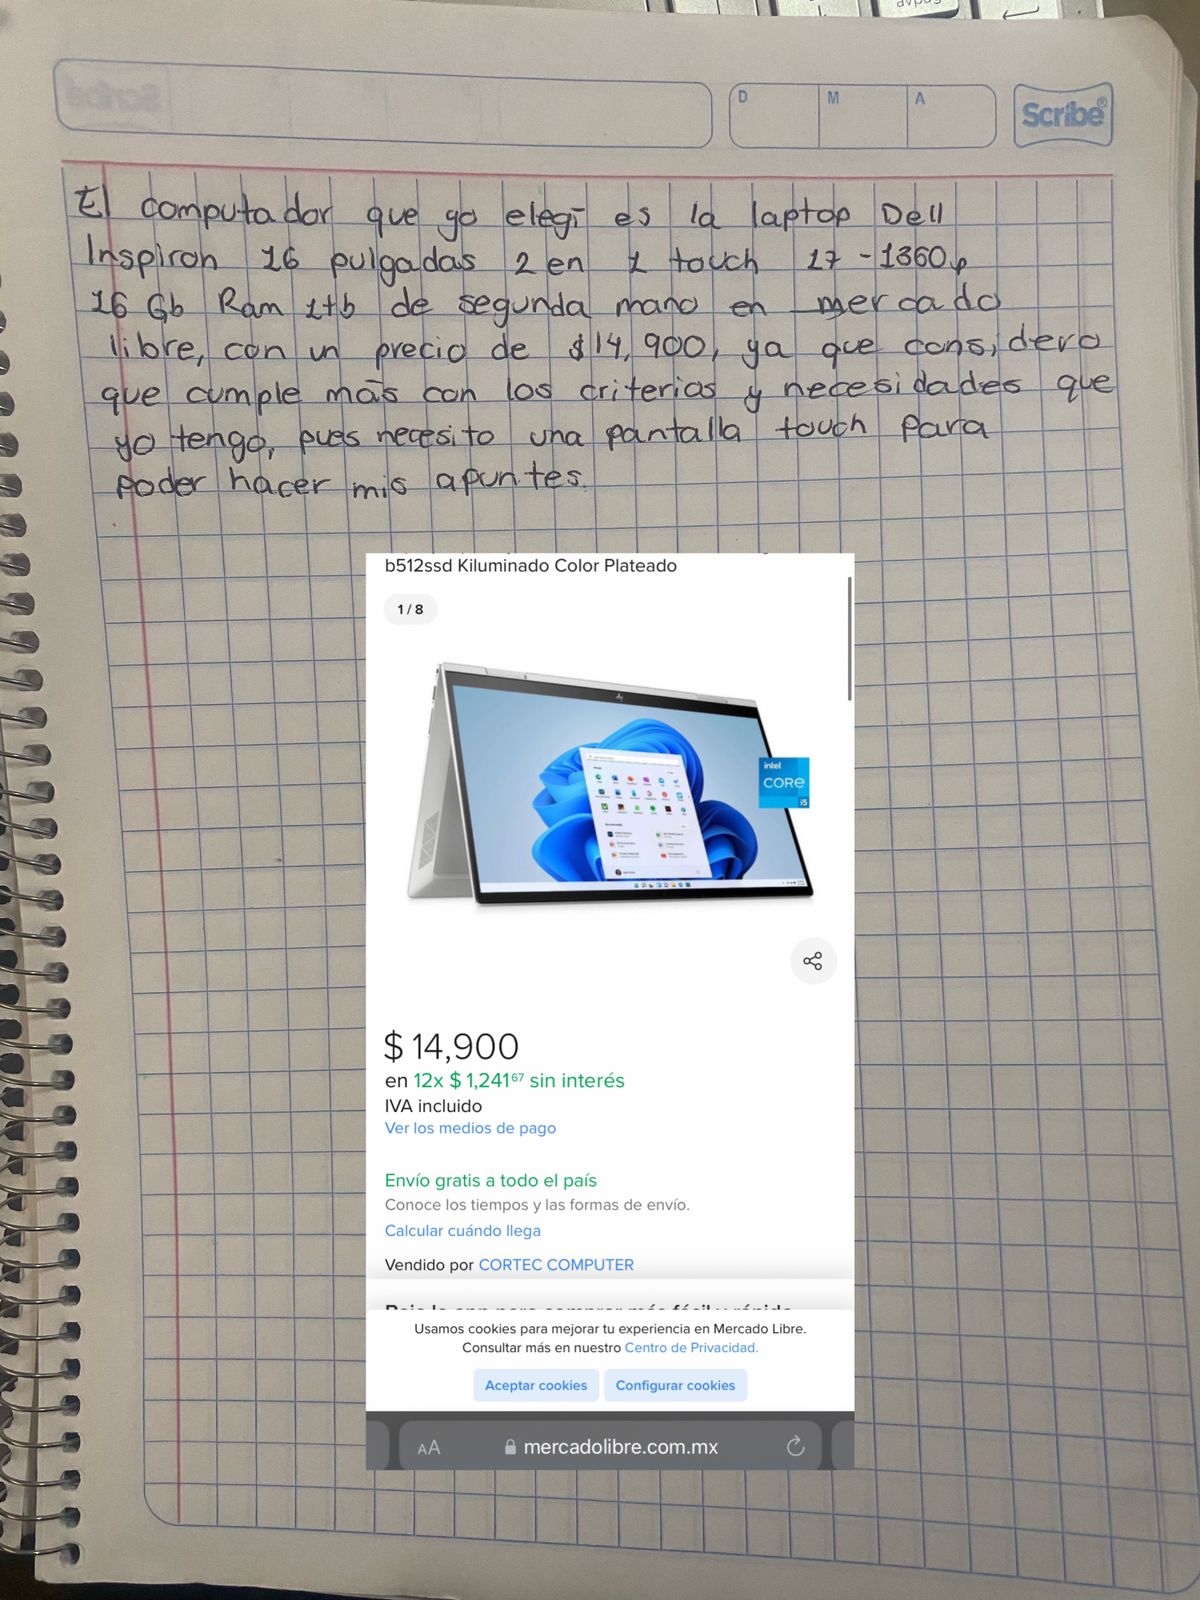 D M A
Scribe®
El computador que yo elegí es la laptop Dell
Inspiron 16 pulgadas 2 en 1 touch i7 - 1360p
16 Gb Ram 1tb de segunda mano en mercado
libre, con un precio de $14,900, ya que considero
que cumple más con los criterias y necesidades que
yo tengo, pues necesito una pantalla touch para
poder hacer mis apuntes.
b512ssd Kiluminado Color Plateado
1 / 8
intel
CORE
i5
$ 14,900
en 12x $ 1,241 67 sin interés
IVA incluido
Ver los medios de pago
Envío gratis a todo el país
Conoce los tiempos y las formas de envío.
Calcular cuándo llega
Vendido por CORTEC COMPUTER
Usamos cookies para mejorar tu experiencia en Mercado Libre.
Consultar más en nuestro Centro de Privacidad.
Aceptar cookies Configurar cookies
AA mercadolibre.com.mx